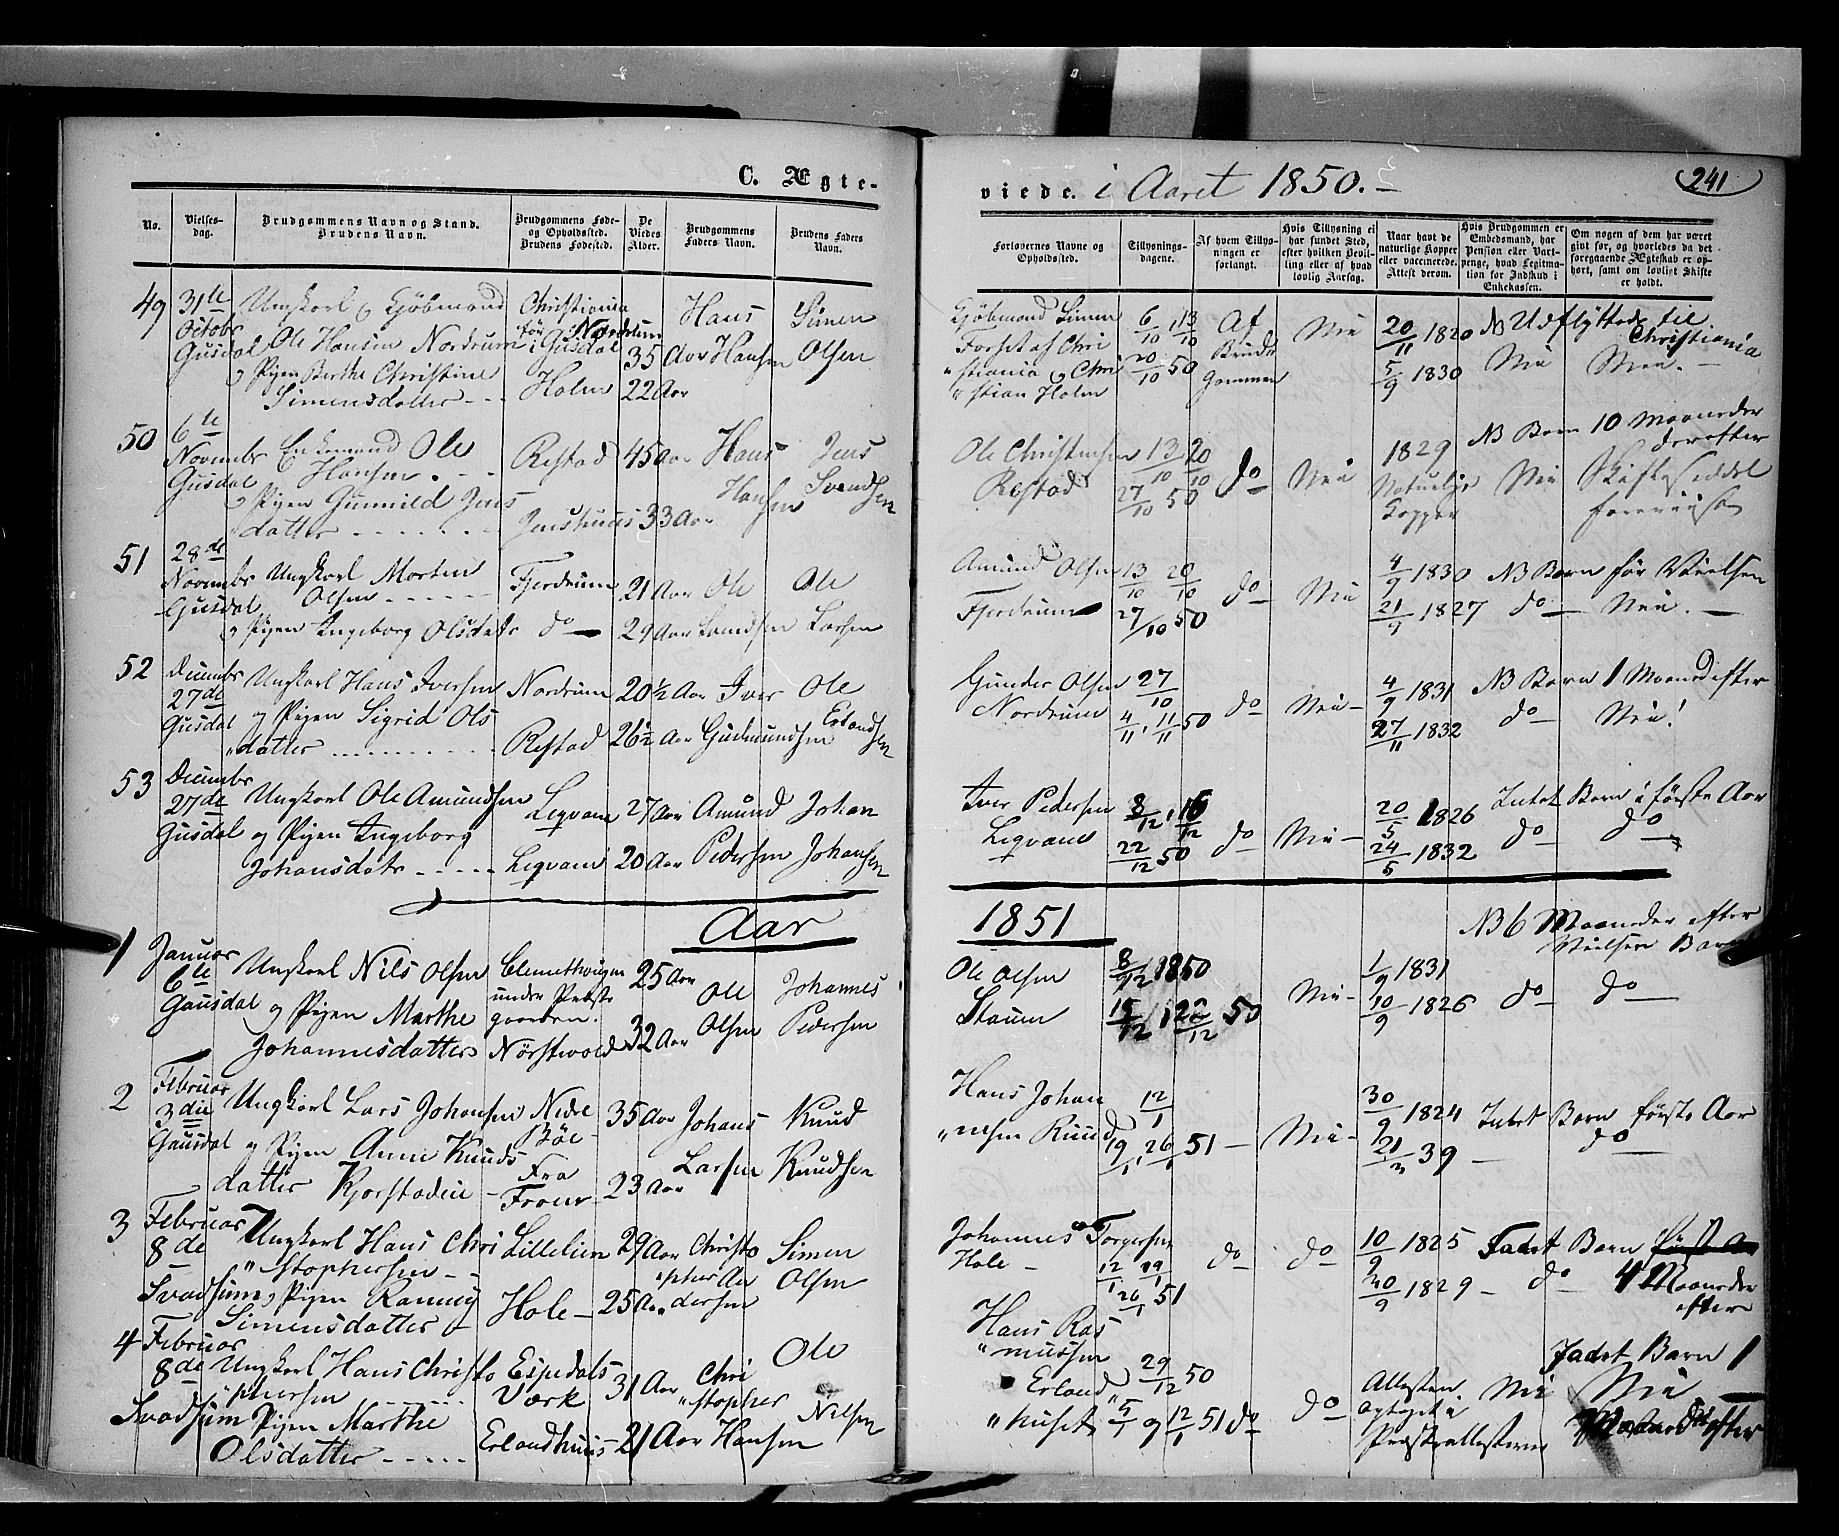 C. Ægte-
viede. i Aaret 1850.-
241
No.
Vielses-
dag.
Brudgommens Navn og Stand.
Brudens Navn.
Brudgommens Føde-
og Opholdssted.
Brudens Fødested.
De
Viedes
Alder.
Brudgommens
Faders Navn.
Brudens Faders
Navn.
Forlovernes Navne og
Opholdssted.
Tillysnings-
dagene.
Af hvem Tillys-
ningen er
forlangt.
Hvis Tillysning ei
har fundet Sted,
efter hvilken Bevil-
ling eller af hvad
lovlig Aarsag.
Naar havt de
naturlige Kopper
eller vaccinerede.
Attest derom.
Hvis Brudgommen er
Embedsmand, har
Pension eller Vart-
penge, hvad Legitima-
tion for Indskud i
Enkekassen.
Om nogen af dem har været
givt før, og hvorledes da det
foregaaende Ægteskab er op-
hørt, samt om lovligt Skifte
er holdt.
49 31te Octobr Gusdal
Ungkarl og Kjøbmand
Ole Hansen Nordrum
og Pigen Berthe Christine
Simensdatter - - -
Christiania
før Nordrum
i Gusdal
Holm
35 Aar
22 Aar
Hans
Hansen
Simen
Olsen
Kjøbmand Simen
Forset af Chri
"stiania og Chri
"stian Holm
6/10 13/10
20/10 50
Af
Brud
gommen
Nei
20/11 1820
5/9 1830
NB Udflyttede til
Christiania
Nei
Nei. -
50 6te Novembr Gusdal
Enkemand Ole
Hansen - - -
og Pigen Gunnild Jens
datter - - - - - -
Restad
Jenshuus
45 Aar
33 Aar
Hans
Hansen
Jens
Svendsen
Ole Christensen
Restad
13/10 20/10
27/10 50
do
Nei
1829
Naturlige
Kopper
NB Barn 10 Maaneder
derefter
Nei
Skifteseddel
foreviist
51 28de Novembr Gusdal
Ungkarl Morten
Olsen - - - - -
og Pigen Ingeborg Olsdatr
Fjerdrum
do
21 Aar
29 Aar
Ole
Ole
Larsen
Amund Olsen
Fjerdrum
13/10 20/10
27/10 50
do
Nei
4/9 1830
21/9 1827
NB Barn før Vielsen
do - Nei. -
52 Decembr 27de Gusdal
Ungkarl Hans Iversen
og Pigen Sigrid Ols
"datter - - - - - -
Nordrum
Restad
20½ Aar
26½ Aar
Iver
Gudmundsen
Ole
Erlandsen
Gunder Olsen
Nordrum
27/10
4/11, 11/11 50
do
Nei -
4/9 1831
27/11 1832
NB Barn 1 Maaned efter
do - Nei!
53 Decembr 27de Gusdal
Ungkarl Ole Amundsen
og Pigen Ingeborg
Johansdatr - - - - -
Leqvam
Leqvam
27 Aar
20 Aar
Amund
Pedersen
Johan
Johansen
Iver Pedersen
Leqvam
8/12, 15/12
22/12 50
do
Nei -
20/5 1826
24/5 1832
Intet Barn i første Aar
do
do
Aar 1851
1 Januar 6te Gausdal
Ungkarl Nils Olsen
og Pigen Marthe
Johannesdatter
under Præste
gaarden.
25 Aar
32 Aar
Ole
Olsen
Johannes
Pedersen
Ole Olsen
Stauem
8/12 1850
15/12, 22/12 50
Nei -
1/9 1831
10/9 1826
NB 6 Maaneder efter
Vielsen Barn
do
do
2 Februar 3die Gausdal
Ungkarl Lars Johansen
og Pigen Anne Knuds
datter Kjorstadeie -
Nedre
Bøe -
Fra
35 Aar
23 Aar
Johans
Larsen
Knud
Knudsen
Hans Johan
"nesen Ruud
12/1
19/1, 26/1 51 -
Nei -
30/9 1824
21/3 39
Intet Barn første Aar
do
3 Februar 8de Svadsum
Ungkarl Hans Chri
"stophersen - -
og Pigen Ranni
Simensdatter -
Lillelien
Hole -
29 Aar
25 Aar
Christo
"pher An
dersen
Simen
Olsen
Johannes Torgersen
Hole -
12/1 19/1
26/1 51
do
do
10/9 1825
30/9 1829
Fadt Barn
do
4 Maaneder
efter
4 Februar 8de Svadsum
Ungkarl Hans Christo
"phersen - - - - -
Pigen Marthe
Olsdatter - - - - -
Espedals
Værk
Erlandhuus
31 Aar
21 Aar
Chri
"stopher
Hansen
Ole
Nilsen
Hans Ras
"mussen
Erland
"huset
29/12 50
5/1 og 12/1 51
do
do
Attesten
optaget i
Præsteattesterne
Nei
Fadt Barn 1
Nei
Maaned efter